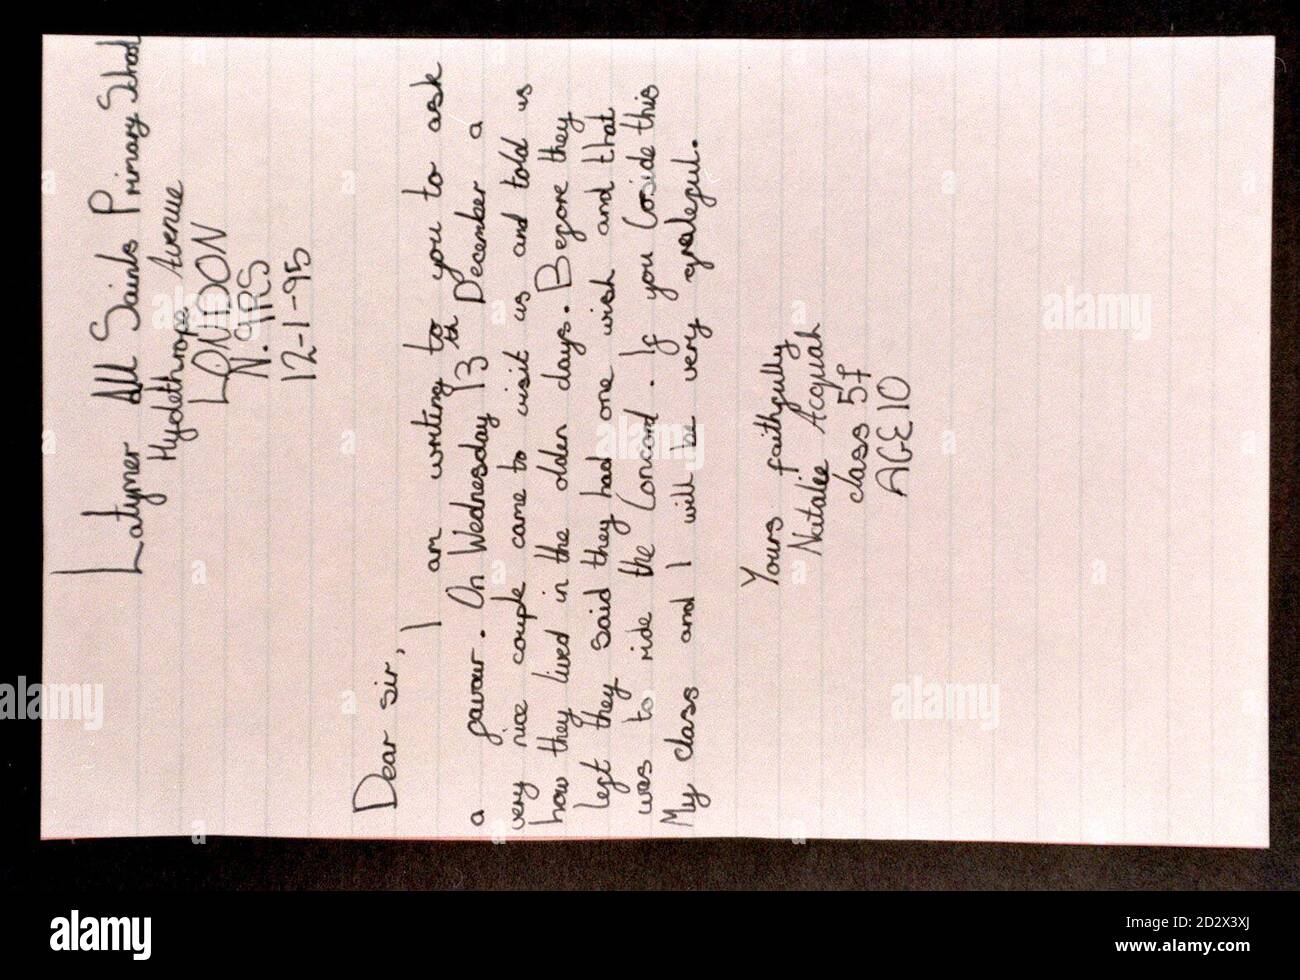 Latymer All Saints Primary School
Hydethrope Avenue
LONDON
N.9RS
12-1-95
Dear sir,
I am writing to you to ask
a favour. On Wednesday 13th December a
very nice couple came to visit us and told us
how they lived in the olden days. Before they
left they said they had one wish and that
was to ride the Concord. If you Coside this
My class and I will be very graleful.
Yours faithfully
Natalie Acquah
class 5F
AGE 10
alamy
Image ID: G2X3XJ
www.alamy.com